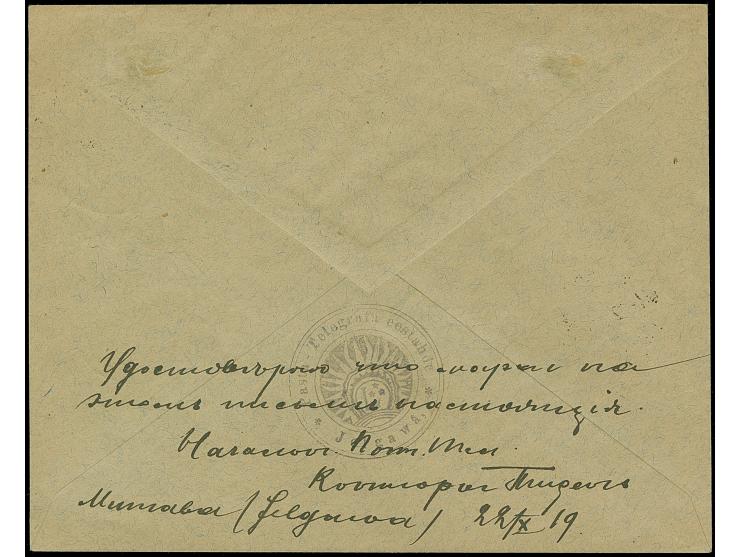 Pasta-Telegrafa eestahde
* Jelgawâ, *
Удостовѣряю что марки на
этомъ письмѣ настоящія.
Начальн. Почт. Тел.
Конторы
Митава (Jelgawa) 22/X 19.